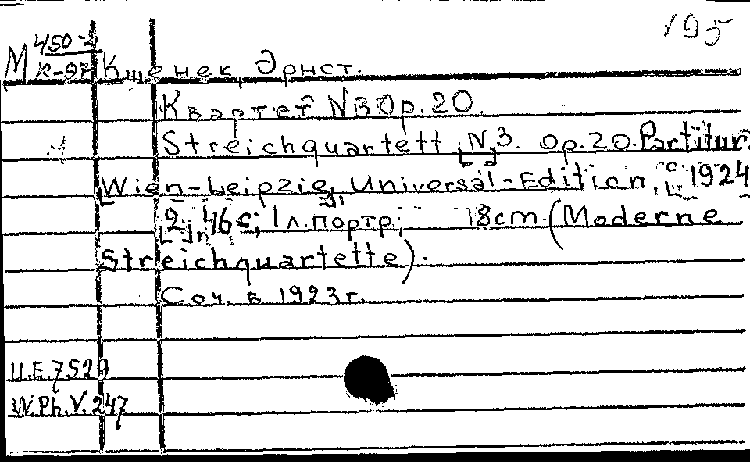 195
М 450-2
К-97
Кшенек, Эрнст.
Квартет N3 Op. 20.
Streichquartett [N]3. Op. 20. Partitur.
Wien-Leipzig, Universal-Edition, [c 1924]
[2], 46 с; 1 л. портр; 18cm (Moderne
Streichquartette).
Соч. в 1923 г.
U.E. 7529
W.Ph.V. 247